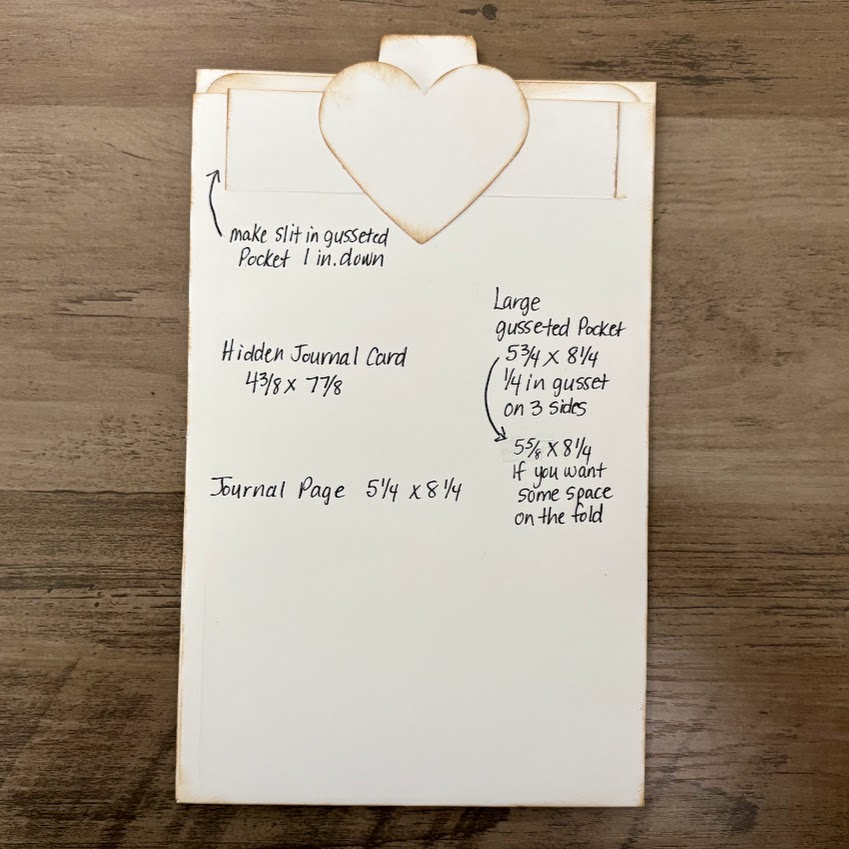 make slit in gusseted
Pocket 1 in. down
Large
gusseted Pocket
5 3/4 x 8 1/4
1/4 in gusset
on 3 sides
Hidden Journal Card
4 3/8 x 7 7/8
5 5/8 x 8 1/4
If you want
some space
on the fold
Journal Page 5 1/4 x 8 1/4